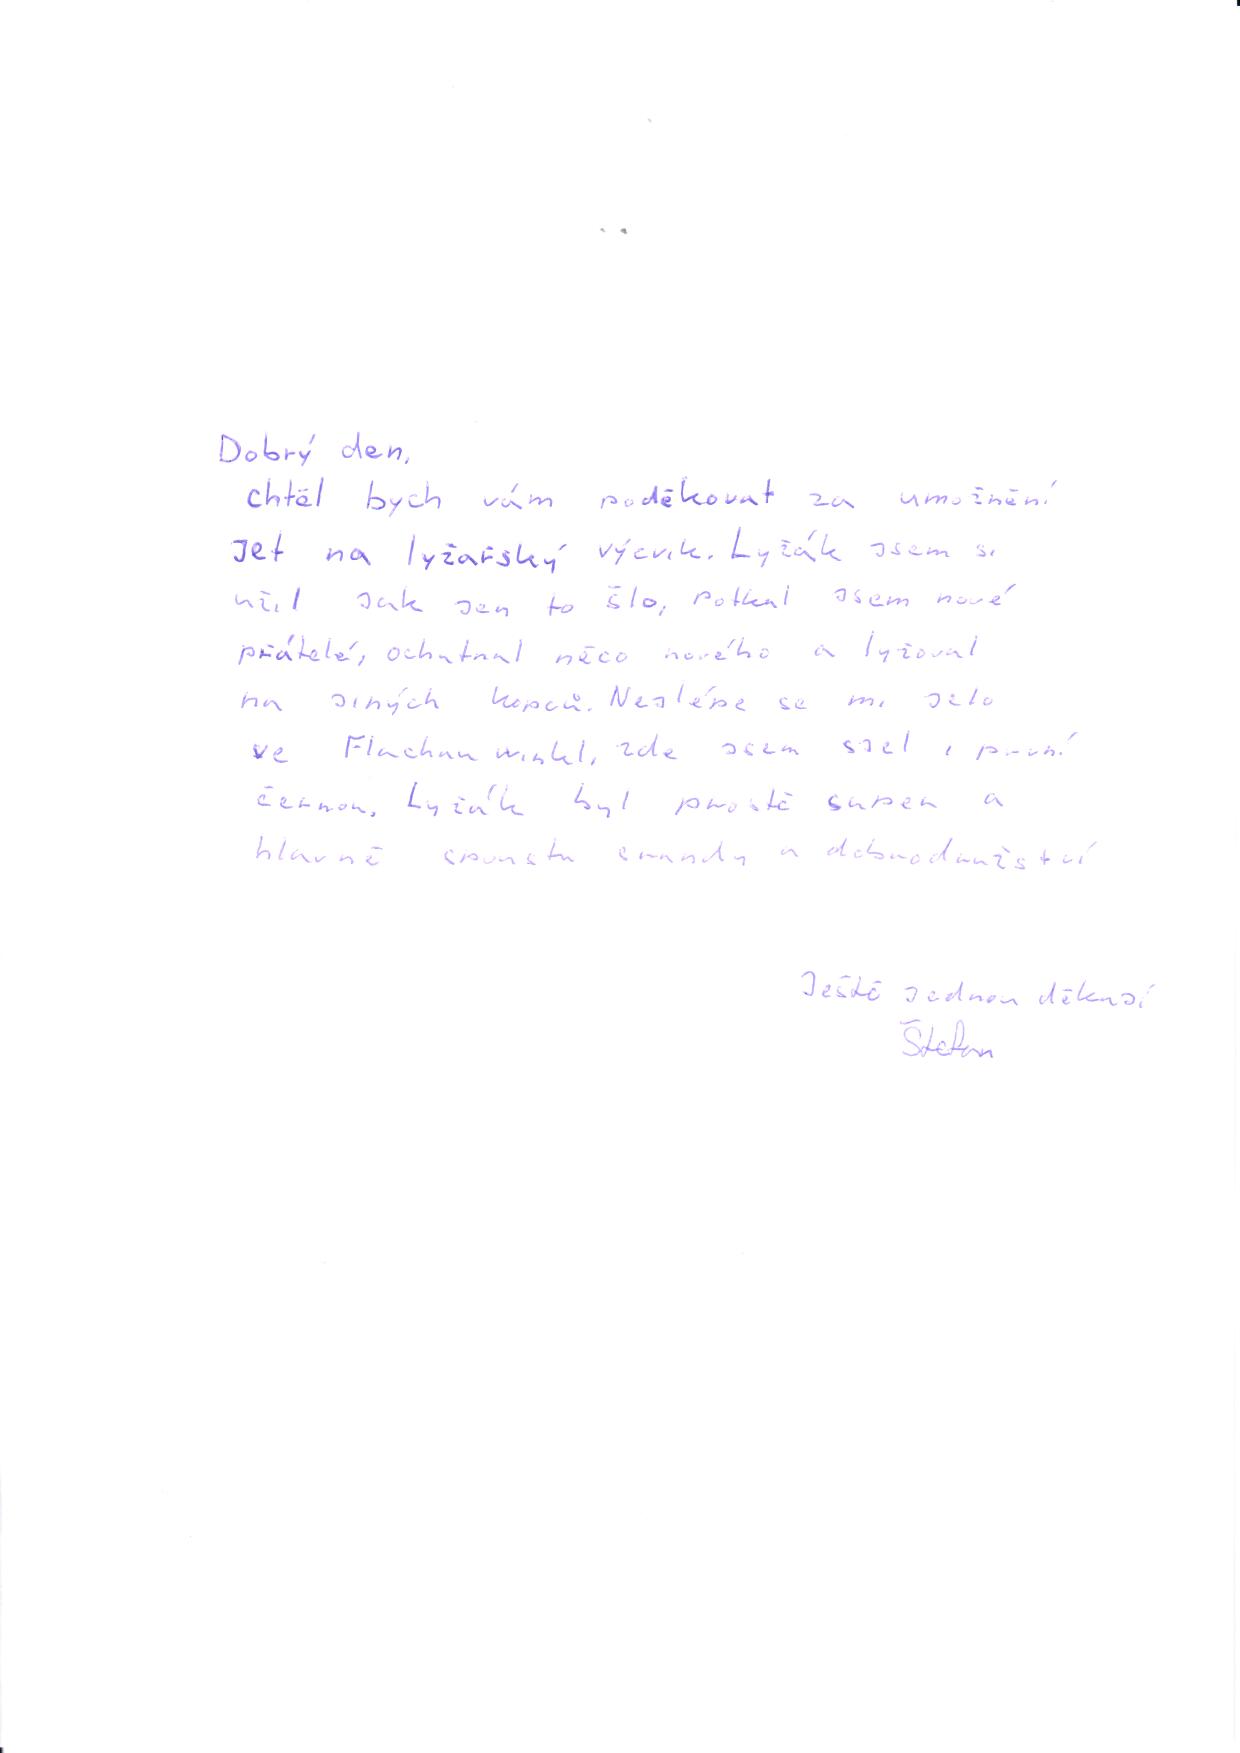 Dobrý den,
chtěl bych vám poděkovat za umožnění
jet na lyžařský výcvik. Lyžák jsem si
užil jak jen to šlo, potkal jsem nové
přátelé, ochutnal něco nového a lyžoval
na jiných kopců. Nejlépe se mi jelo
ve Flachau winkl, zde jsem sjel i první
černou. Lyžák byl prostě super a
hlavně spousta srandy a dobrodružství
Ještě jednou děkuji
Štefan